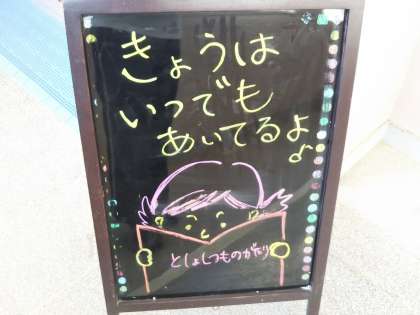 きょうは
いつでも
あいてるよ♪
としょしつものがたり